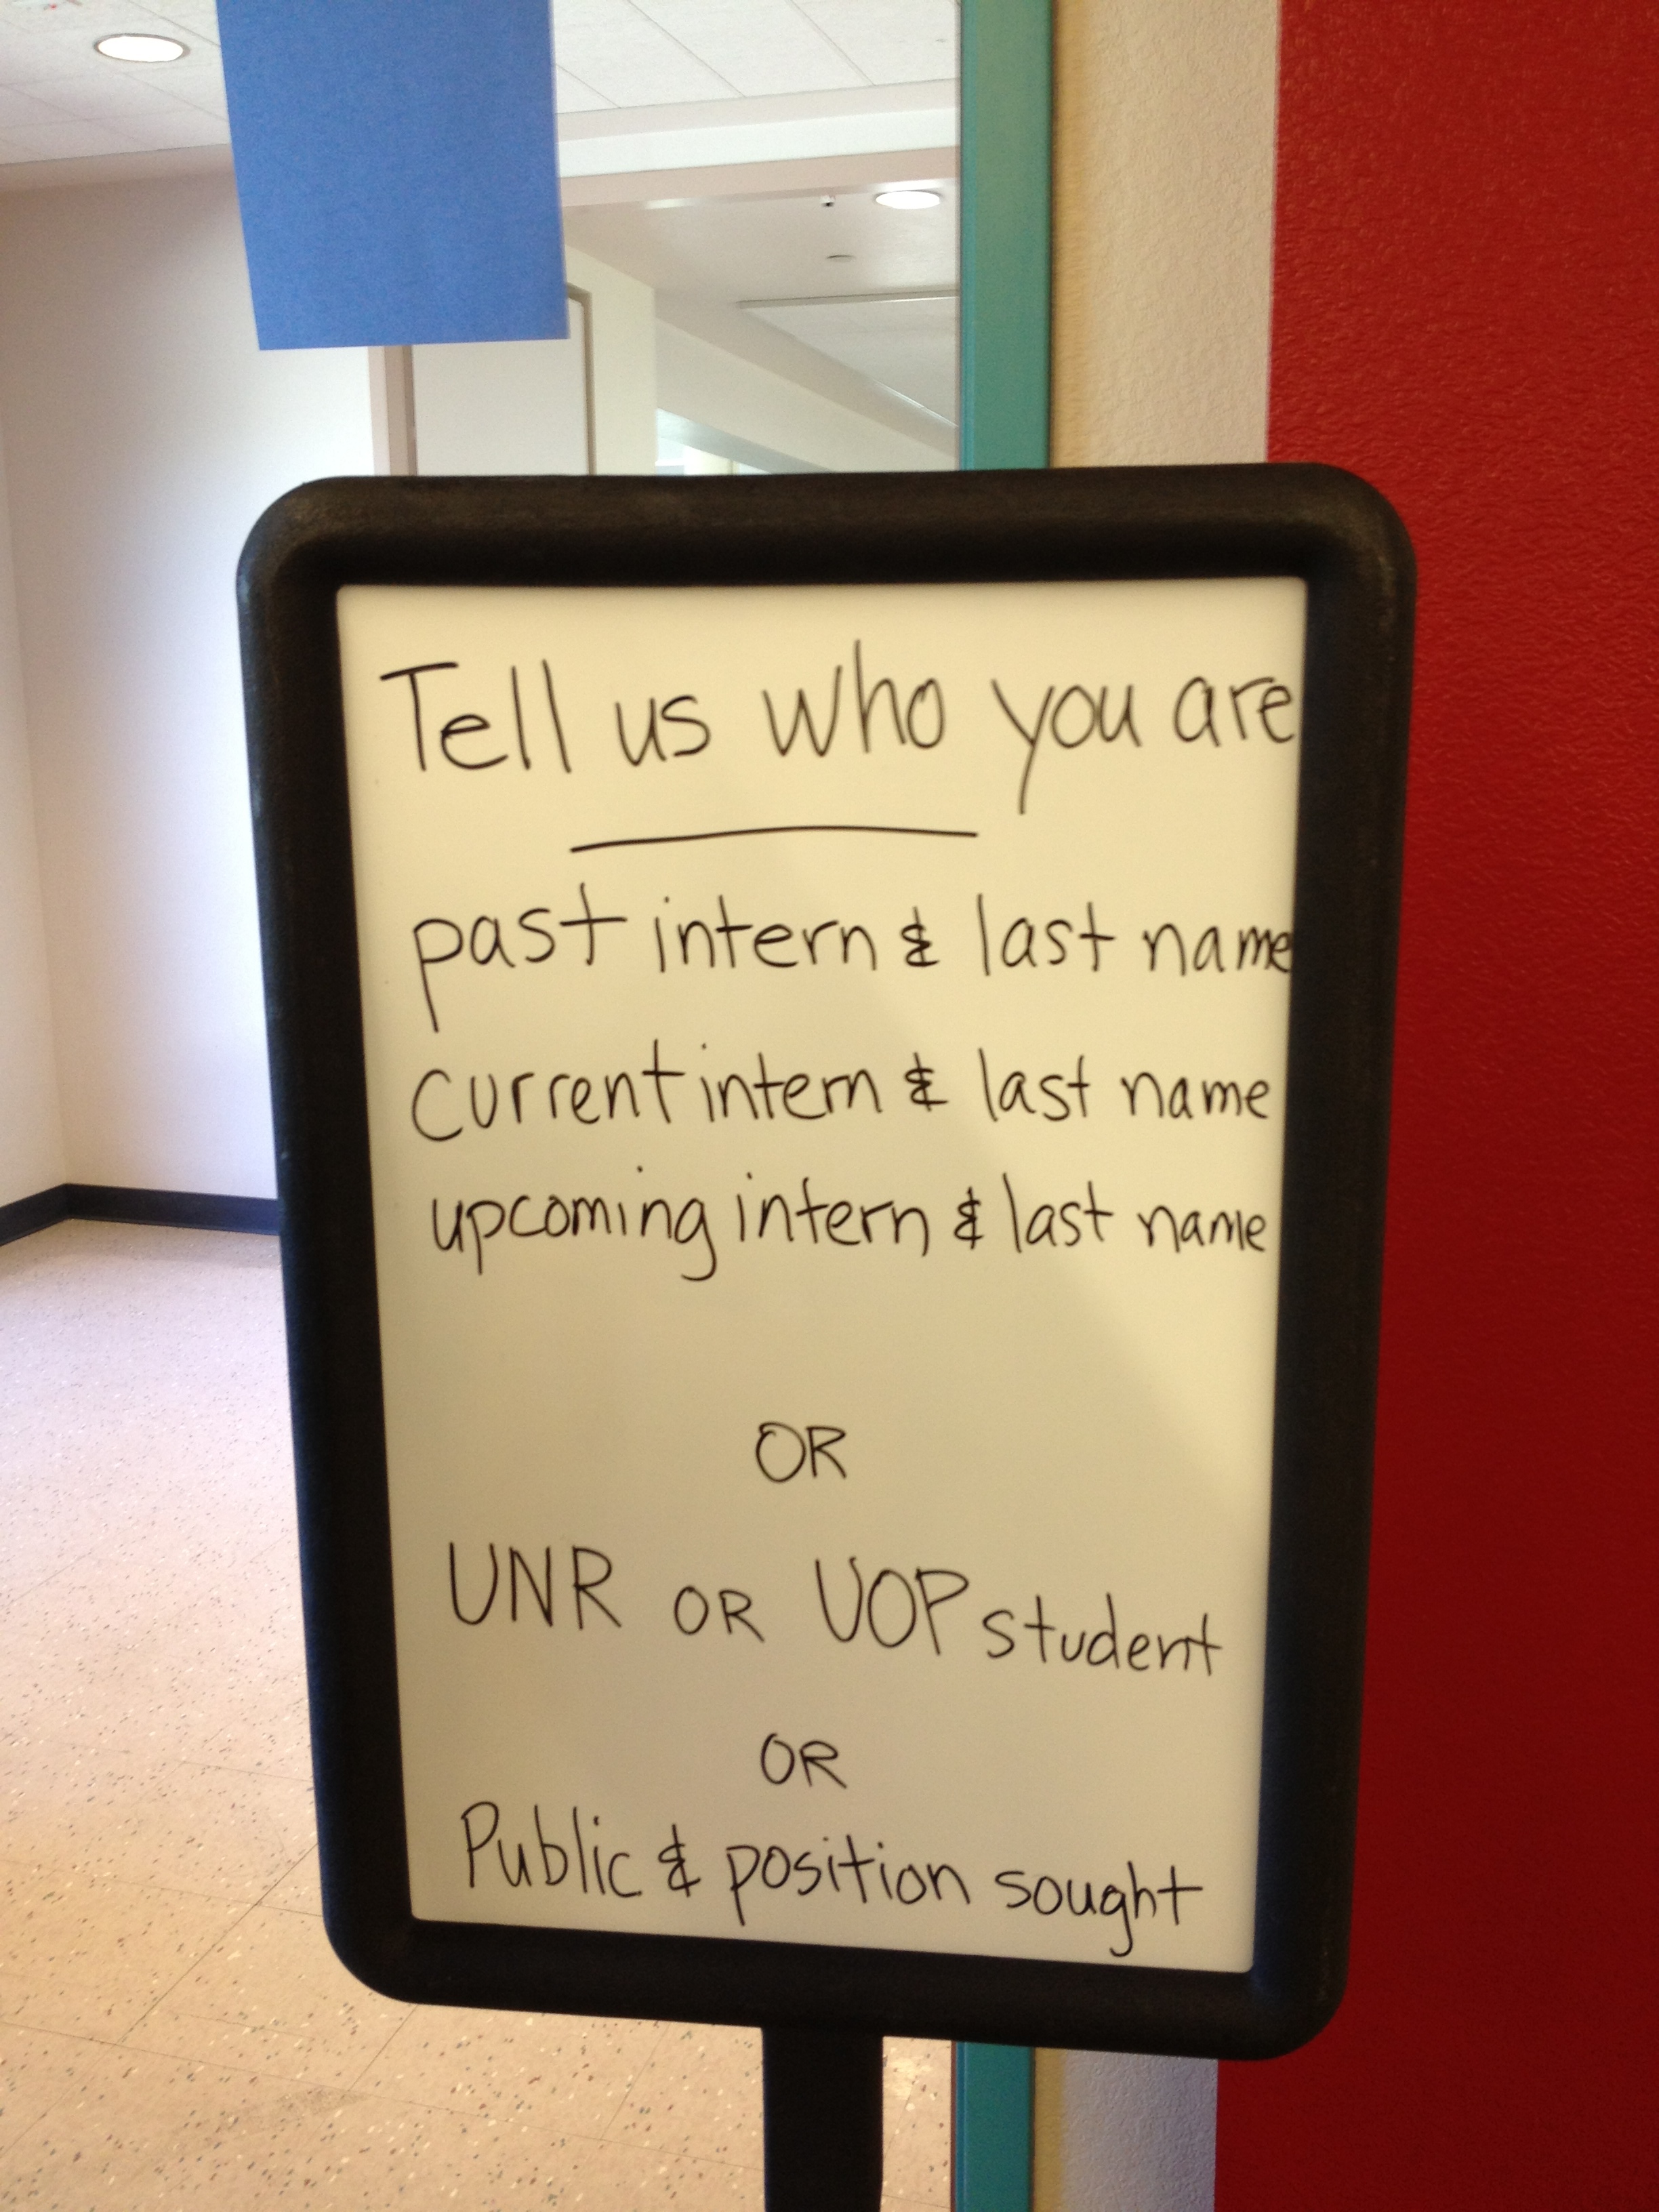 Tell us who you are
past intern & last name
current intern & last name
upcoming intern & last name
OR
UNR OR UOP student
OR
Public & position sought